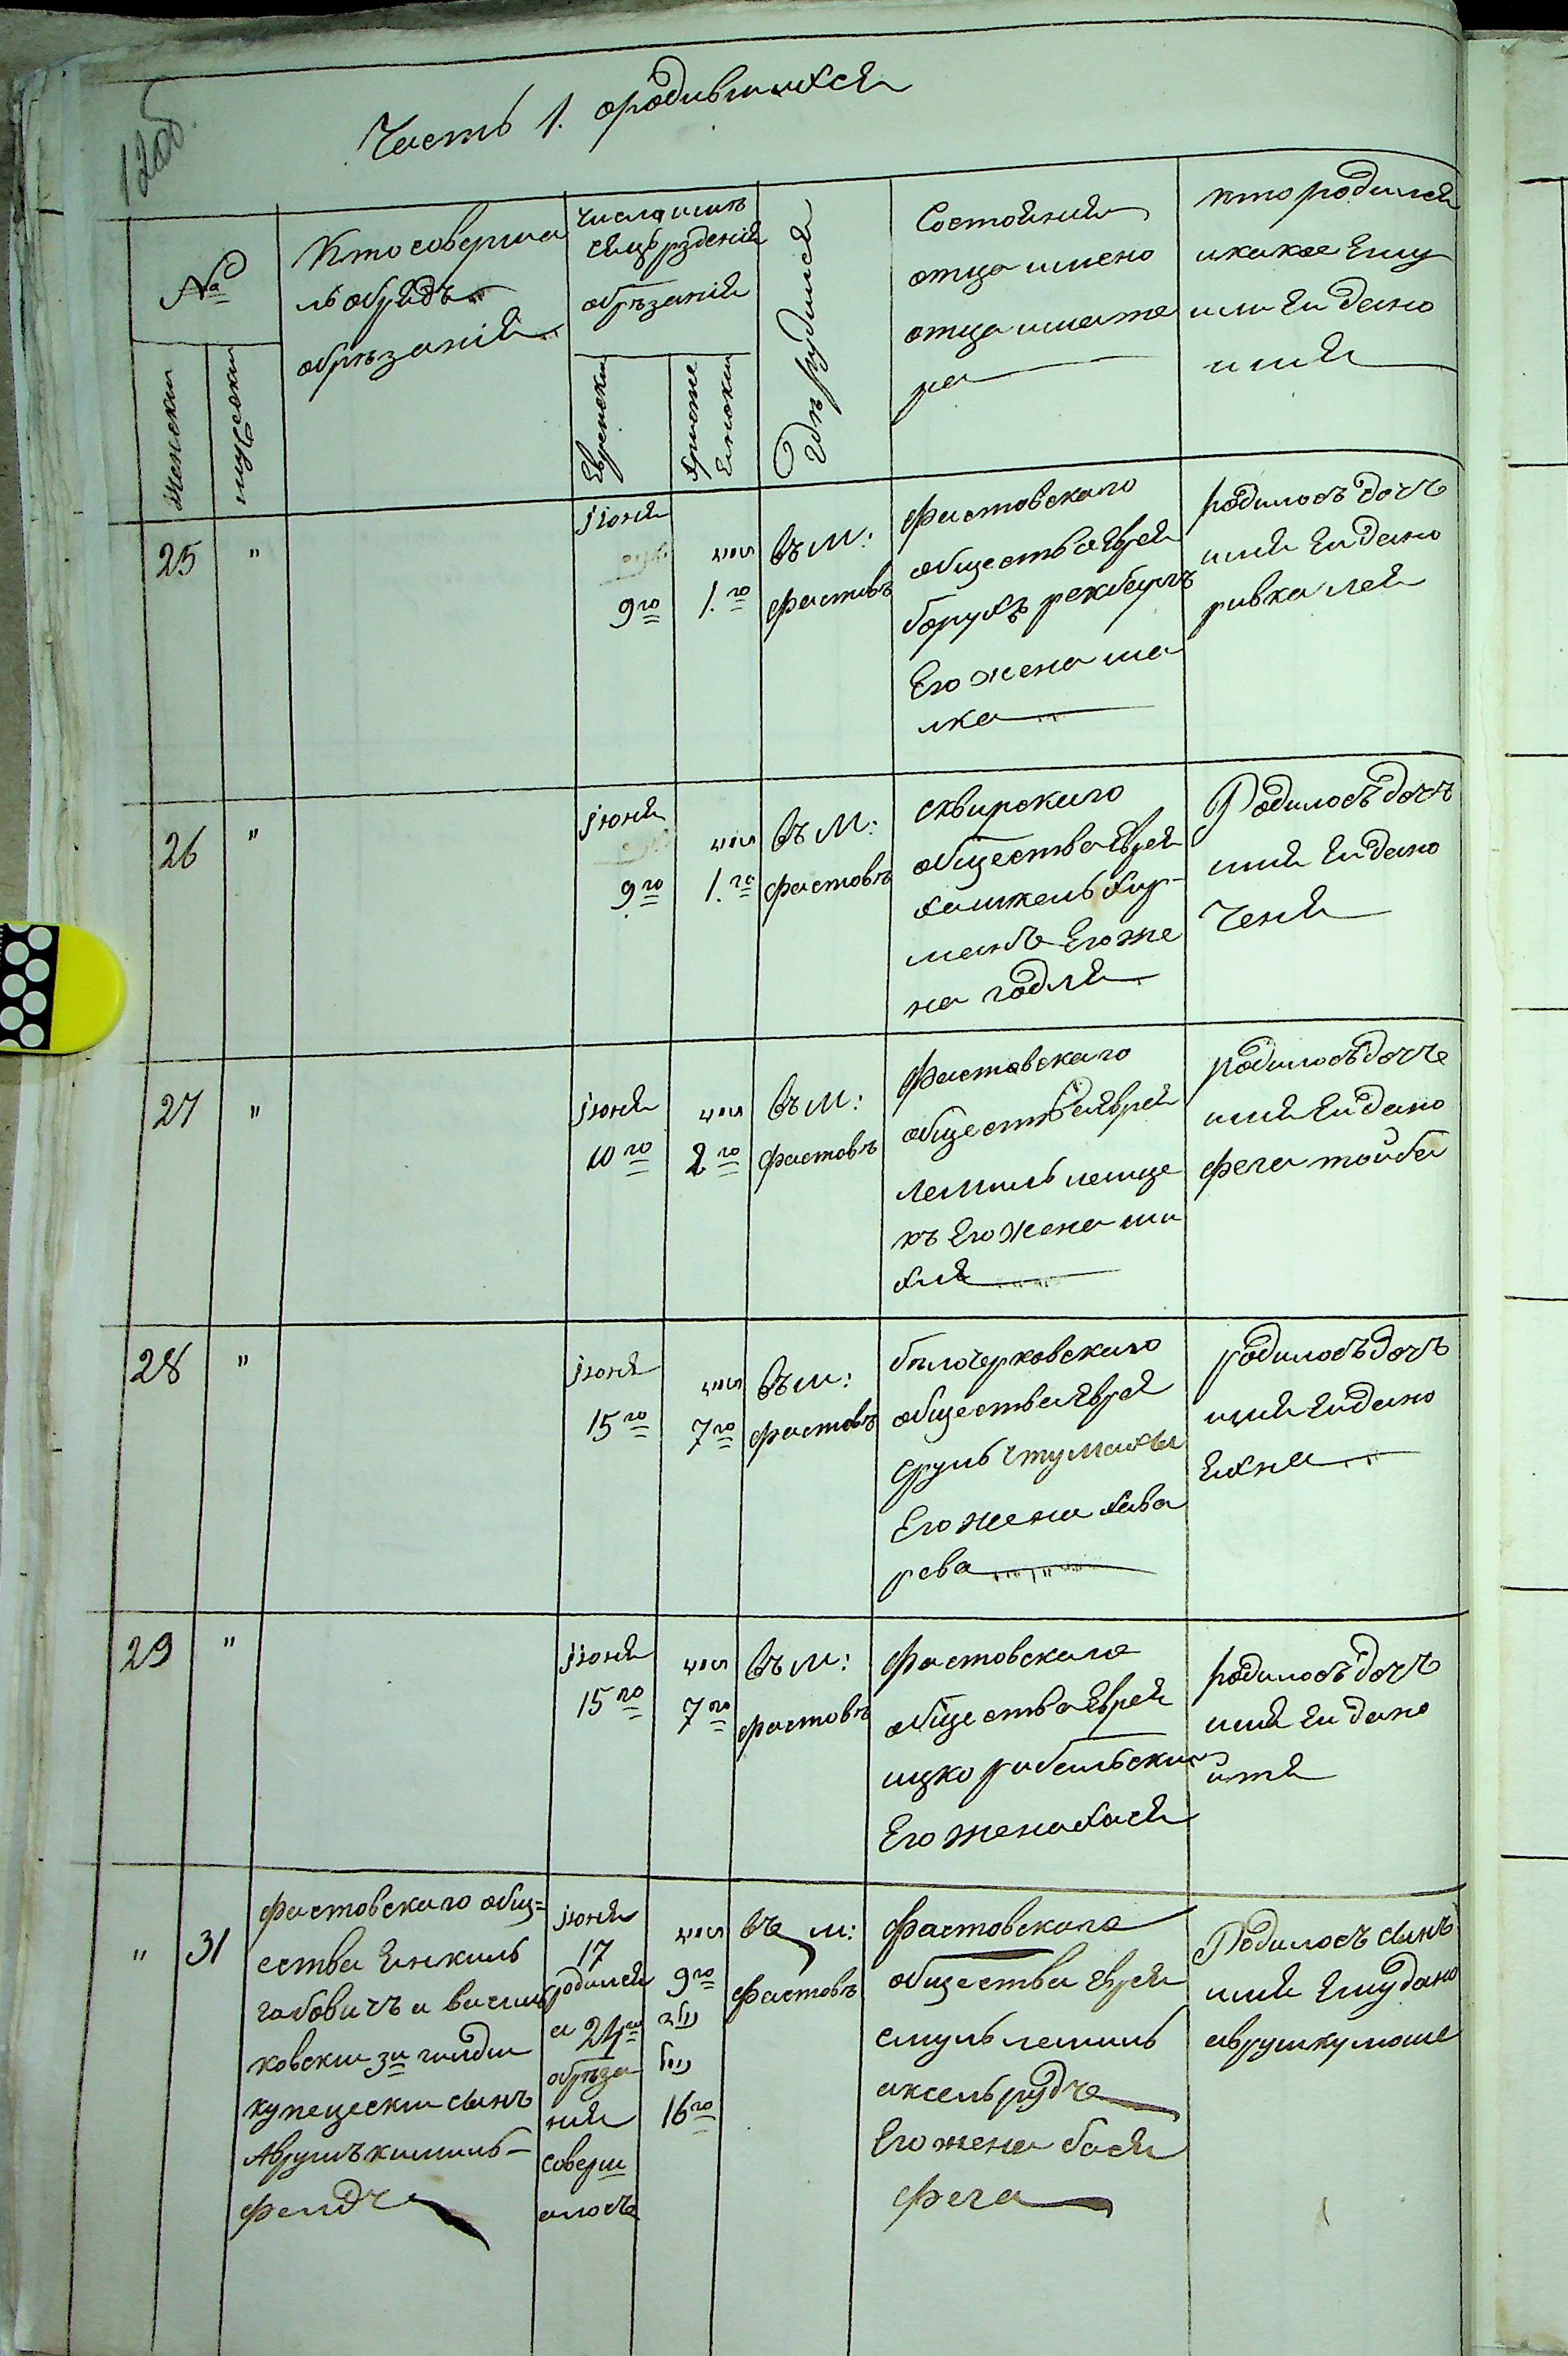 12об.
Часть 1. ородившихся
№
Женскии
мужескии
Кто соверша
лъ обрядъ
обрѣзанія
числа и мѣ
сяцъ рзденія
обрѣзанія
Евреиски
христи
Гдѣ рудился
Состоянія
отца имено
отца и мате
ра
кто родился
и какое Ему
или Еи дано
имя
25
"
Іюня
9го
1.го
въ м:
фастовъ
фастовского
общества Еврей
борухъ рекберъ
Его жена ма
лка
родилосъ дочъ
имя Еи дано
ривка лея
26
"
Іюня
9го
1.го
въ м:
фастовъ
сквирскиго
общества Еврей
Его же
на годля
Родилосъ дочъ
имя Еи дано
Ченя
27
"
Іюня
10го
2го
въ м:
фастовъ
фастовского
общества Еврей
лемиль
къ Его жена ми
хля
родилосъ дочъ
имя Еи дано
фега тойба
28
"
Іюня
15го
7го
въ м:
фастовъ
бѣлочерковскиго
общества Еврей
Его жена хава
рева
родилосъ дочъ
имя Еи дано
Ехна
29
"
Іюня
15го
7го
въ м:
фастовъ
фастовскаго
общества Еврей
ицко рибальскии
Его жена хася
родилосъ дочъ
имя Еи дано
итя
"
31
фастовскаго общ=
ества Янкиль
габовичъ и василь
ковскии 3и гилди
купецескии сынъ
Аврумъ кимиль-
фелдъ
Іюня
17
родился
а 24го
обрѣза
ния
соверш
алосъ
9го
16го
въ м:
фастовъ
фастовскаго
общества Еврей
смуль лемиль
аксельрудъ
Его жена бася
фега
Родилосъ сынъ
имя Ему дано